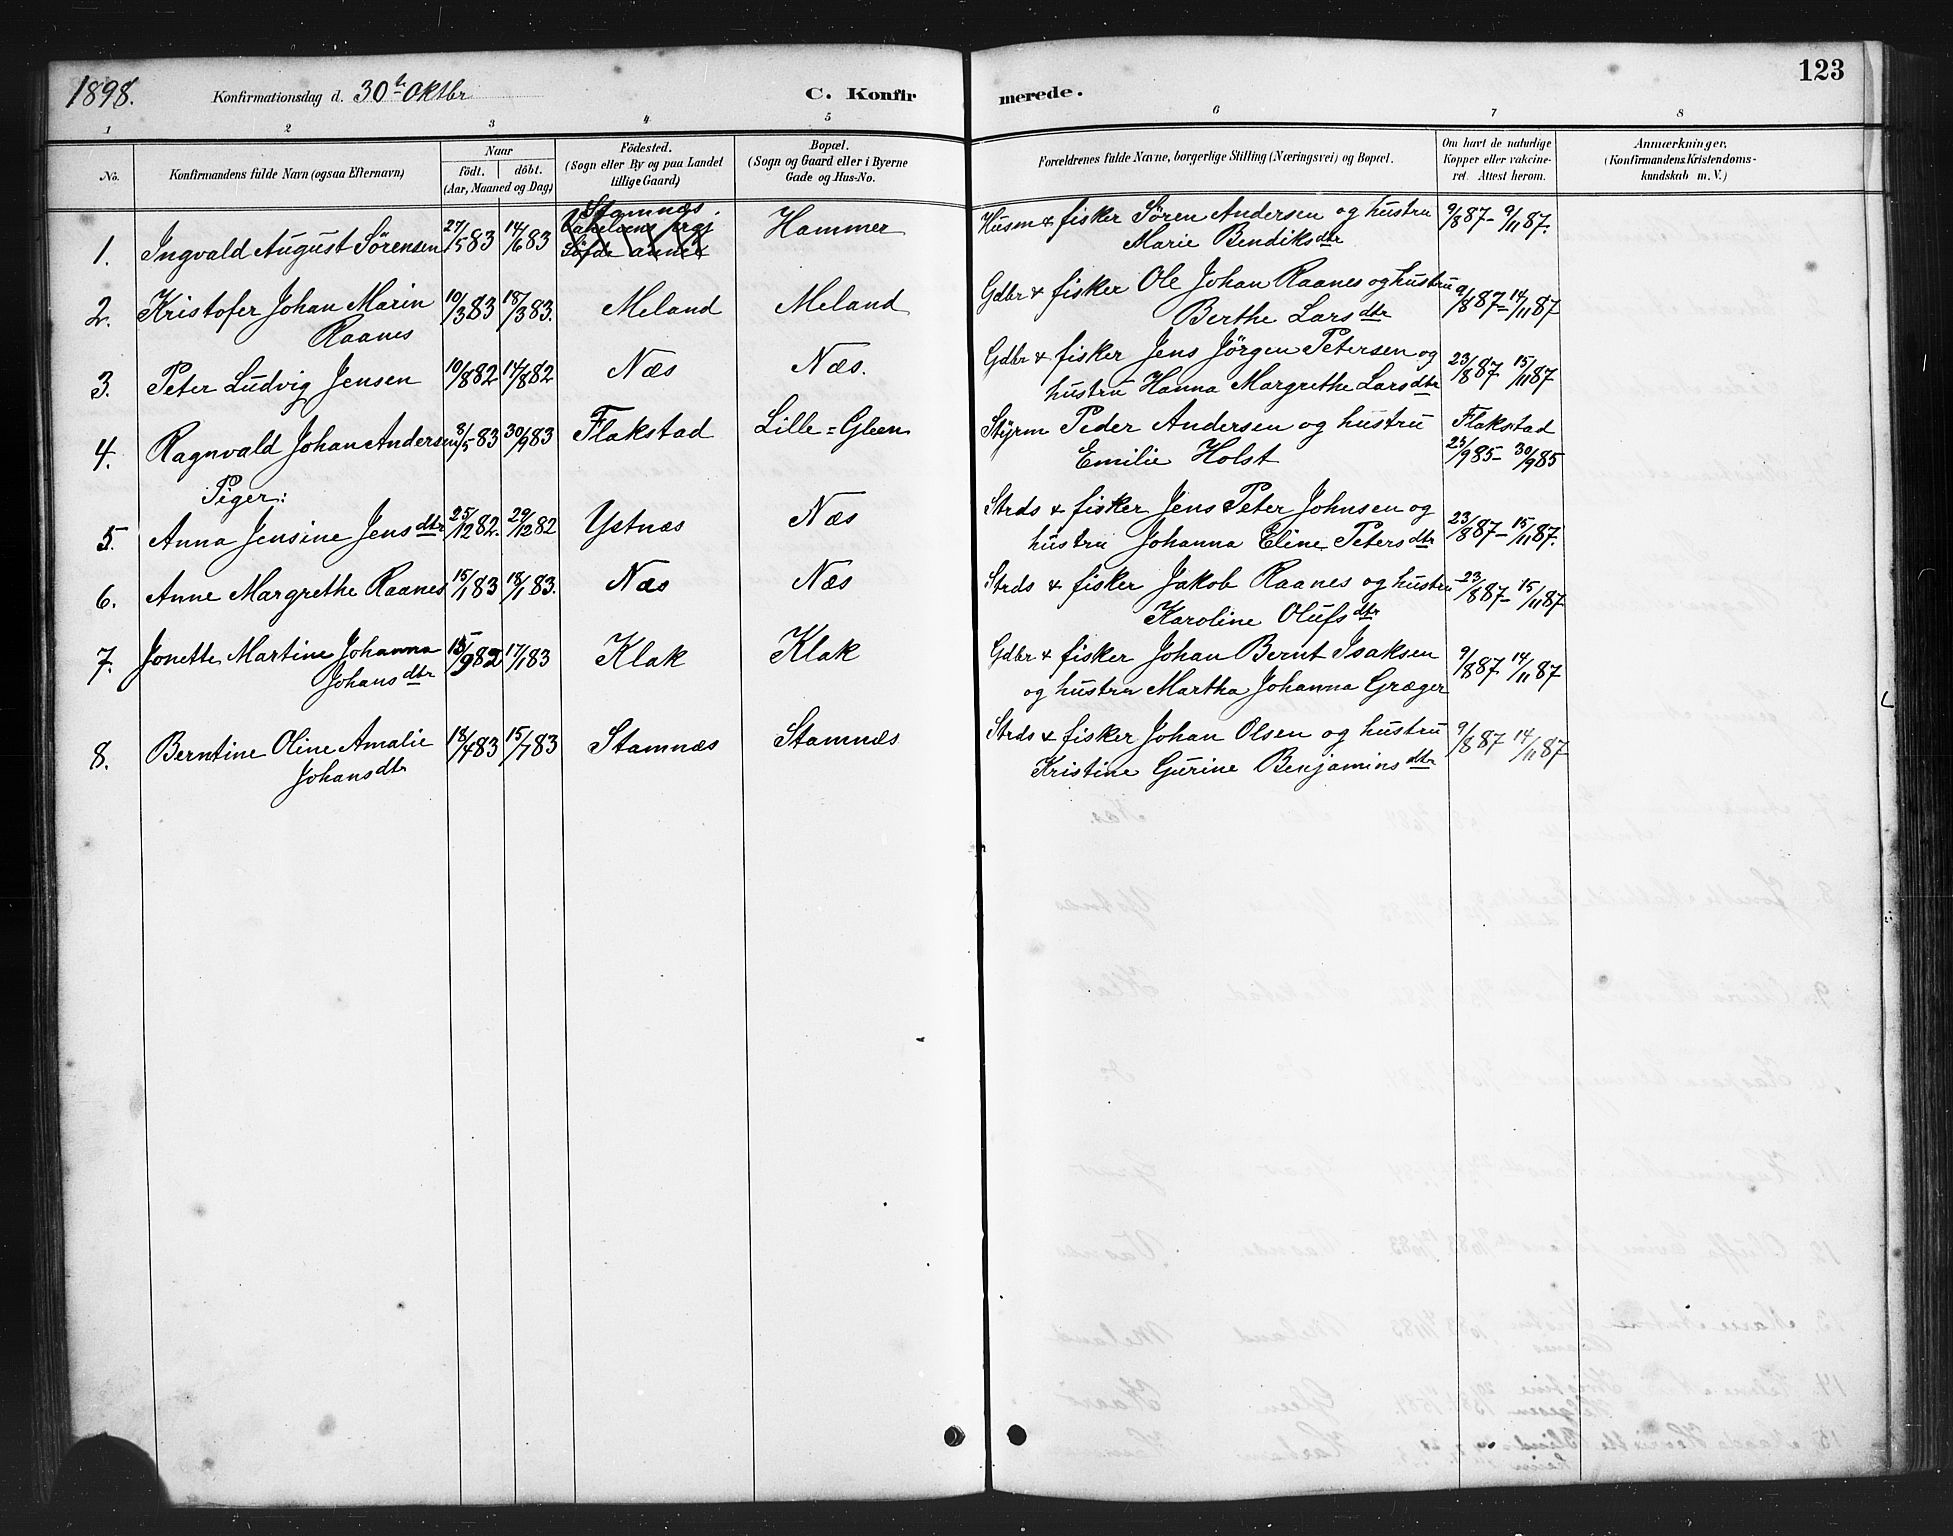 1898. Konfirmationsdag d. 30te Oktbr C. Konfirmerede. 123
1 2 3 4 5 6 7 8
No. Konfirmandens fulde Navn (ogsaa Efternavn) Naar födt. döbt. (Aar, Maaned og Dag) Födested. (Sogn eller By og paa Landet tillige Gaard) Bopæl. (Sogn og Gaard eller i Byerne Gade og Hus-No. Forældrenes fulde Navne, borgerlige Stilling (Næringsvei) og Bopæl. Om havt de naturlige Kopper eller vakcineret. Attest herom. Anmærkninger. (Konfirmandens Kristendomskundskab m. V.)
1. Ingvald August Sörensen 27/5 83 14/6 83 Stamnæs Hammer Husm & fisker Sören Andersen og hustru 9/8 87 - 9/11 87.
Söfde annex Marie Bendiksdtr
2. Kristofer Johan Marin 10/3 83 18/3 83. Meland Meland Gdbr & fisker Ole Johan Raanes og hustru 9/8 87 - 14/11 87
Raanes Berthe Larsdtr
3. Peter Ludvig Jensen 10/8 82 14/8 82 Næs Næs. Gdbr & fisker Jens Jörgen Petersen og 23/8 87 15/11 87
hustru Hanna Margrethe Larsdtr
4. Ragnvald Johan Andersen 3/5 83 30/9 83 Flakstad Lille=Gleen Styrm Peder Andersen og hustru Flakstad
Emilie Holst 23/9 85 - 30/9 85
Piger:
5. Anna Jensine Jensdtr 25/12 82. 29/12 82 Ystnæs Næs Strds & fisker Jens Peter Johnsen og 23/8 87 - 15/11 87.
hustru Johanna Eline Petersdtr
6. Anne Margrethe Raanes 15/1 83 18/1 83. Næs Næs Strds & fisker Jakob Raanes og hustru 23/8 87 - 15/11 87
Karoline Olufsdtr
7. Jonette Martine Johanna 15/9 82 17/1 83 Klak Klak Gdbr & fisker Johan Bernt Isaksen 9/8 87 14/11 87
Johansdtr og hustru Martha Johanna Græger
8. Berntine Oline Amalie 18/4 83 15/7 83 Stamnæs Stamnæs Strds & fisker Johan Olsen og hustru 9/8 87 14/11 87
Johansdtr Kristine Gurine Benjaminsdtr